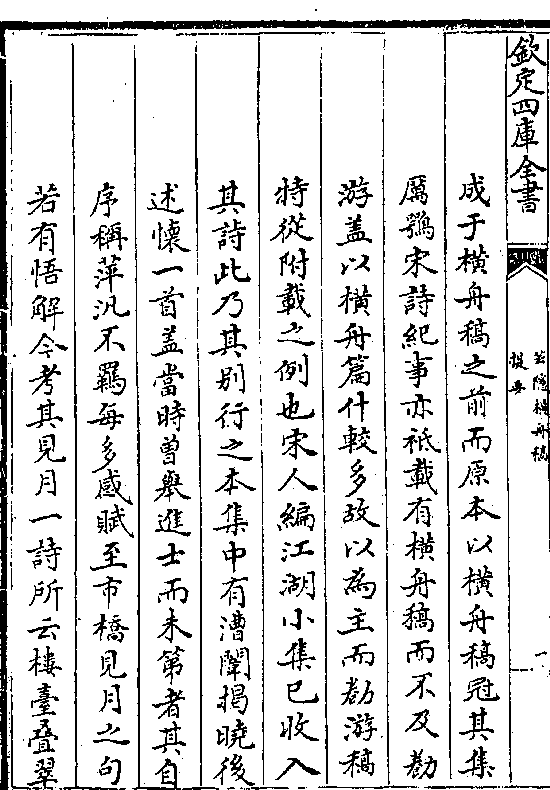 欽定四庫全書
芸隠橫舟稿
提要
一
成于橫舟稿之前而原本以橫舟稿冠其集
厲鶚宋詩紀事亦袛載有橫舟稿而不及勸
游盖以橫舟篇什較多故以為主而勸游稿
特從附載之例也宋人編江湖小集已收入
其詩此乃其别行之本集中有漕闈揭曉後
述懷一首盖當時曽舉進士而未第者其自
序稱萍汎不羈每多感賦至市橋見月之句
若有悟解今考其見月一詩所云樓臺叠翠